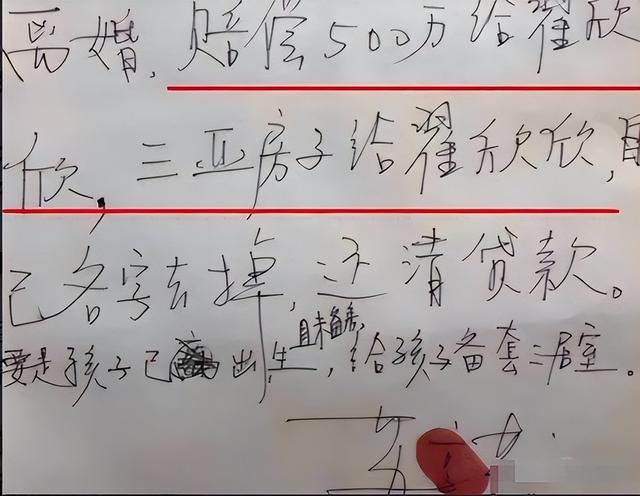 离婚，赔偿500万给翟欣
欣，三亚房子给翟欣欣，自
己名字去掉，还清贷款。
且未备房，
要是孩子已出生，给孩子备套三居室。
苏